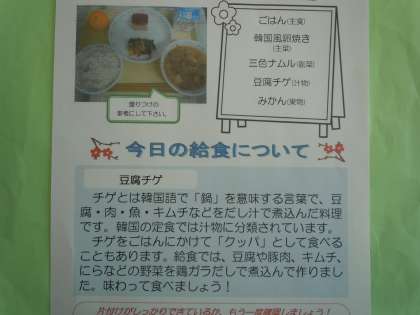 ごはん(主食)
韓国風卵焼き
(主菜)
三色ナムル(副菜)
豆腐チゲ(汁物)
みかん(果物)
盛りつけの
参考にして下さい。
今日の給食について
豆腐チゲ
チゲとは韓国語で「鍋」を意味する言葉で、豆
腐・肉・魚・キムチなどをだし汁で煮込んだ料理
です。韓国の定食では汁物に分類されています。
チゲをごはんにかけて「クッパ」として食べる
こともあります。給食では、豆腐や豚肉、キムチ、
にらなどの野菜を鶏ガラだしで煮込んで作りまし
た。味わって食べましょう!
片付けがしっかりできているか、もう一度確認しましょう!